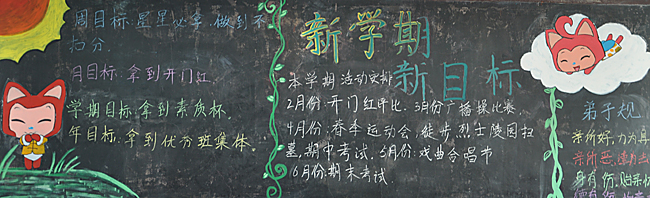 周目标：星星必拿，做到不
扣分
月目标：拿到开门红
学期目标：拿到素质杯.
年目标：拿到优分班集体.
新学期
新目标
本学期活动安排
2月份：开门红评比. 3月份广播操比赛.
4月份：春季运动会，徒步烈士陵园扫
墓，期中考试. 5月份：戏曲合唱节
6月份：期末考试
弟子规
亲所好，力为具
身有伤，贻亲